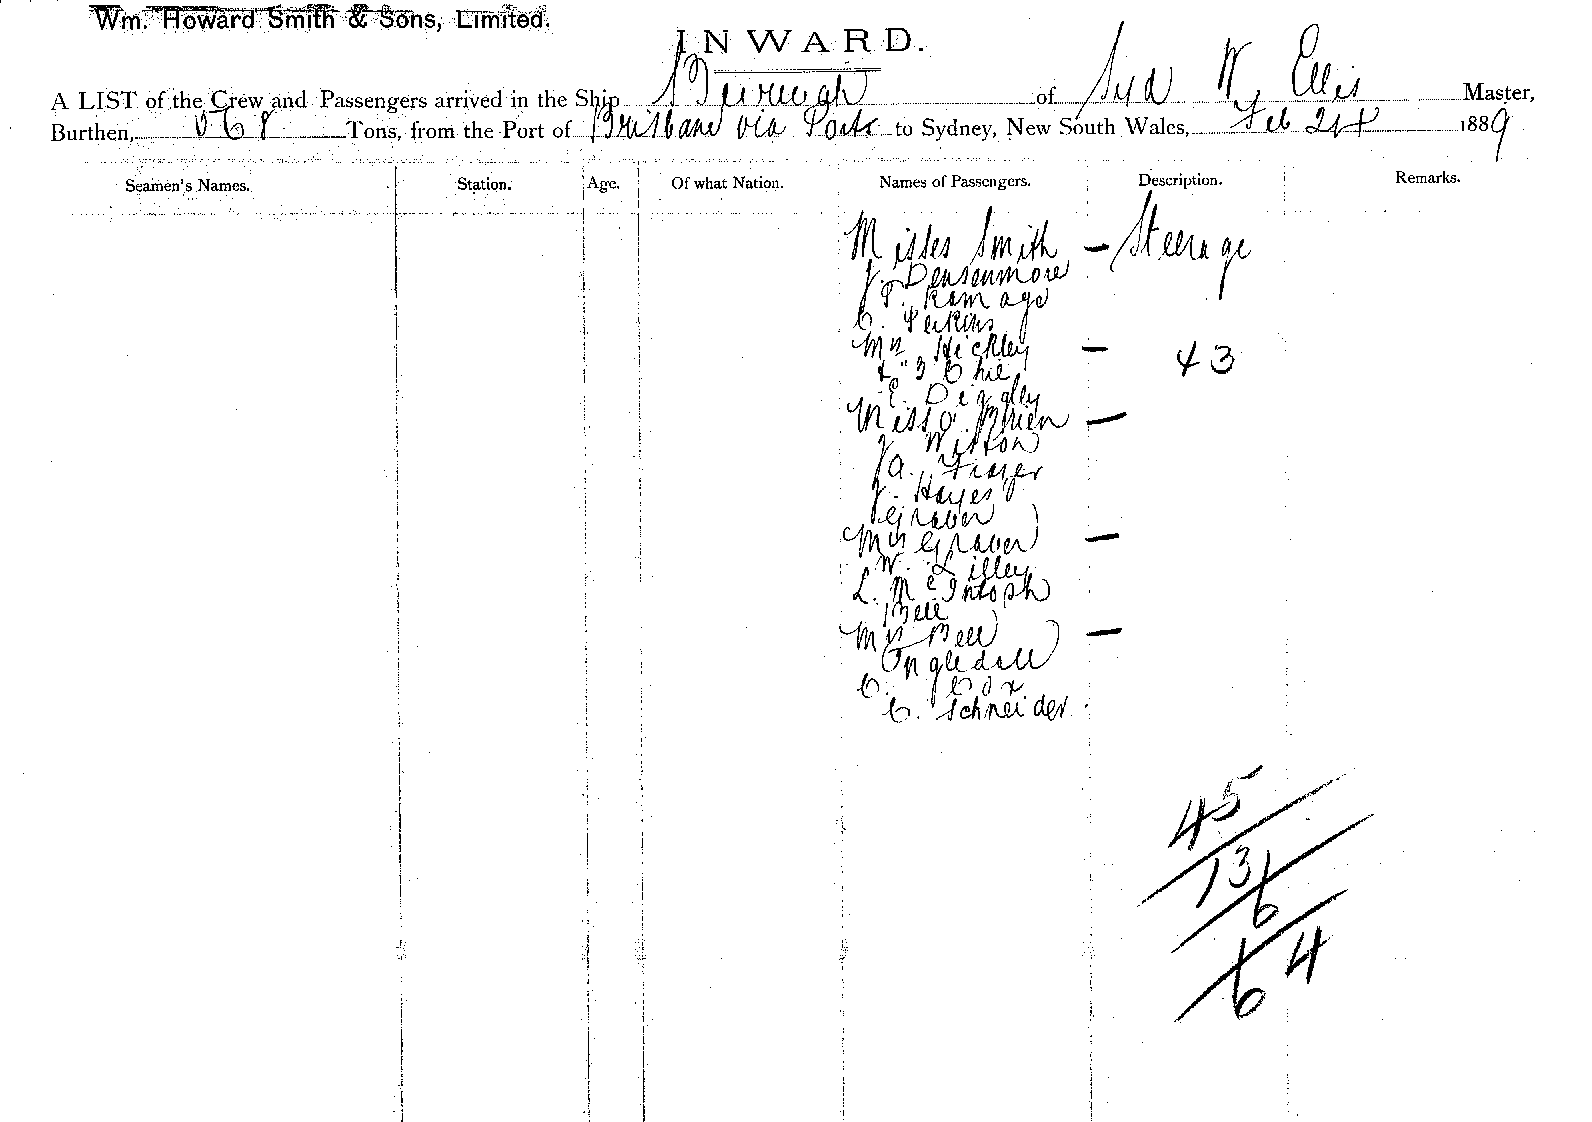 Wm. Howard Smith & Sons, Limited.
INWARD.
A LIST of the Crew and Passengers arrived in the Ship Burwah of Syd W. Ellis Master,
Burthen, Tons, from the Port of Brisbane via Ports to Sydney, New South Wales, Feb 24 1889
Seamen's Names. Station. Age. Of what Nation. Names of Passengers. Description. Remarks.
Misses Smith — Steerage
J. Densenmore
P. Ramage
C. Perkins
Mrs Hickley —
& " 3 Chil 43
E. Diggley
Miss O'Brien —
J. Wilton
J A. Frazer
J. Hayes
Graver
Mrs Graver ) —
W. Lilley
L. McIntosh
Bell
Mrs Bell ) —
Ongledall
C. Cox
C. Schneider
45
13
6
64